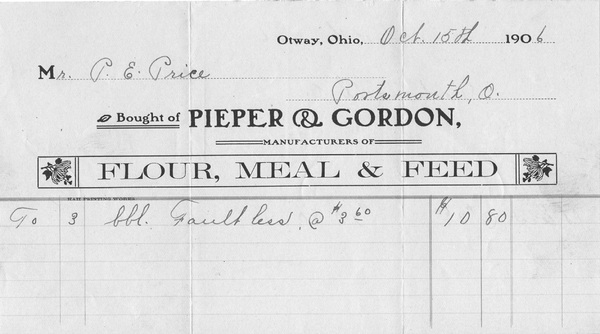 Otway, Ohio, Oct. 15th 1906
Mr. P. E. Price
Portsmouth, O.
Bought of PIEPER & GORDON,
MANUFACTURERS OF
FLOUR, MEAL & FEED
To 3 bbl. Faultless, @ $3 60 $10 80